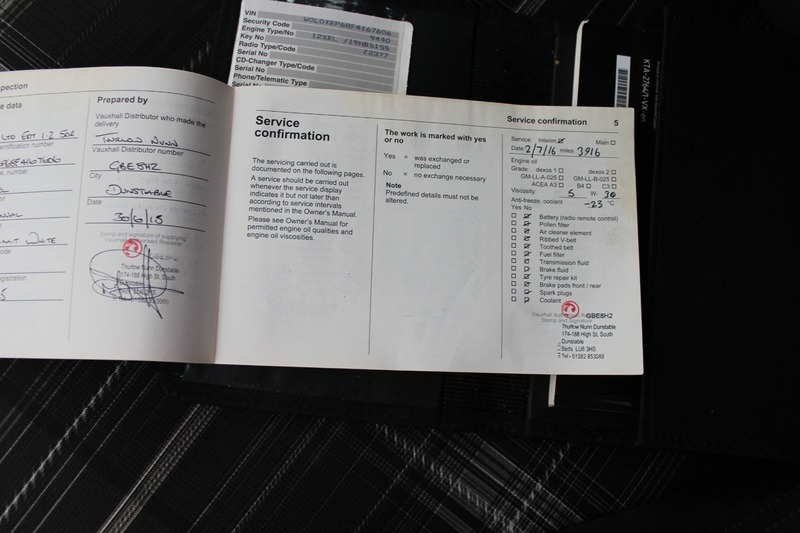 VIN W0L0XEP68F4167606
Security Code 9440
Engine Type/No 12XEL /19HB5155
Key No I2377
Radio Type/Code
Serial No
CD-Changer Type/Code
Serial No
Phone/Telematic Type
Serial No
KTA-2764/1-VX-en
pection
e data
LTD EDT 1.2 5DR
entification number
P68F4167606
e, number
MIT WHITE
ode
egistration
5
Prepared by
Vauxhall Distributor who made the
delivery
THURLOW NUNN
Vauxhall Distributor number
GBE8H2
City
DUNSTABLE
Date
30/6/15
Stamp and signature of supplying
Vauxhall Authorised Repairer
GBE8H2
Thurlow Nunn Dunstable
174-188 High St. South
Service
confirmation
The servicing carried out is
documented on the following pages.
A service should be carried out
whenever the service display
indicates it but not later than
according to service intervals
mentioned in the Owner's Manual.
Please see Owner's Manual for
permitted engine oil qualities and
engine oil viscosities.
Service confirmation 5
The work is marked with yes
or no
Yes = was exchanged or
replaced
No = no exchange necessary
Note
Predefined details must not be
altered.
Service: Interim Main
Date: 2/7/16 miles 3916
Engine oil
Grade: dexos 1 dexos 2
GM-LL-A-025 GM-LL-B-025
ACEA A3 B4 C3
Viscosity: 5 W- 30
Anti-freeze, coolant -23 °C
Yes No
Battery (radio remote control)
Pollen filter
Air cleaner element
Ribbed V-belt
Toothed belt
Fuel filter
Transmission fluid
Brake fluid
Tyre repair kit
Brake pads front / rear
Spark plugs
Coolant
GBE8H2
Vauxhall Authorised Repairer
Stamp and Signature
Thurlow Nunn Dunstable
174-188 High St. South
Dunstable
Beds LU6 3HS
Tel - 01582 853089